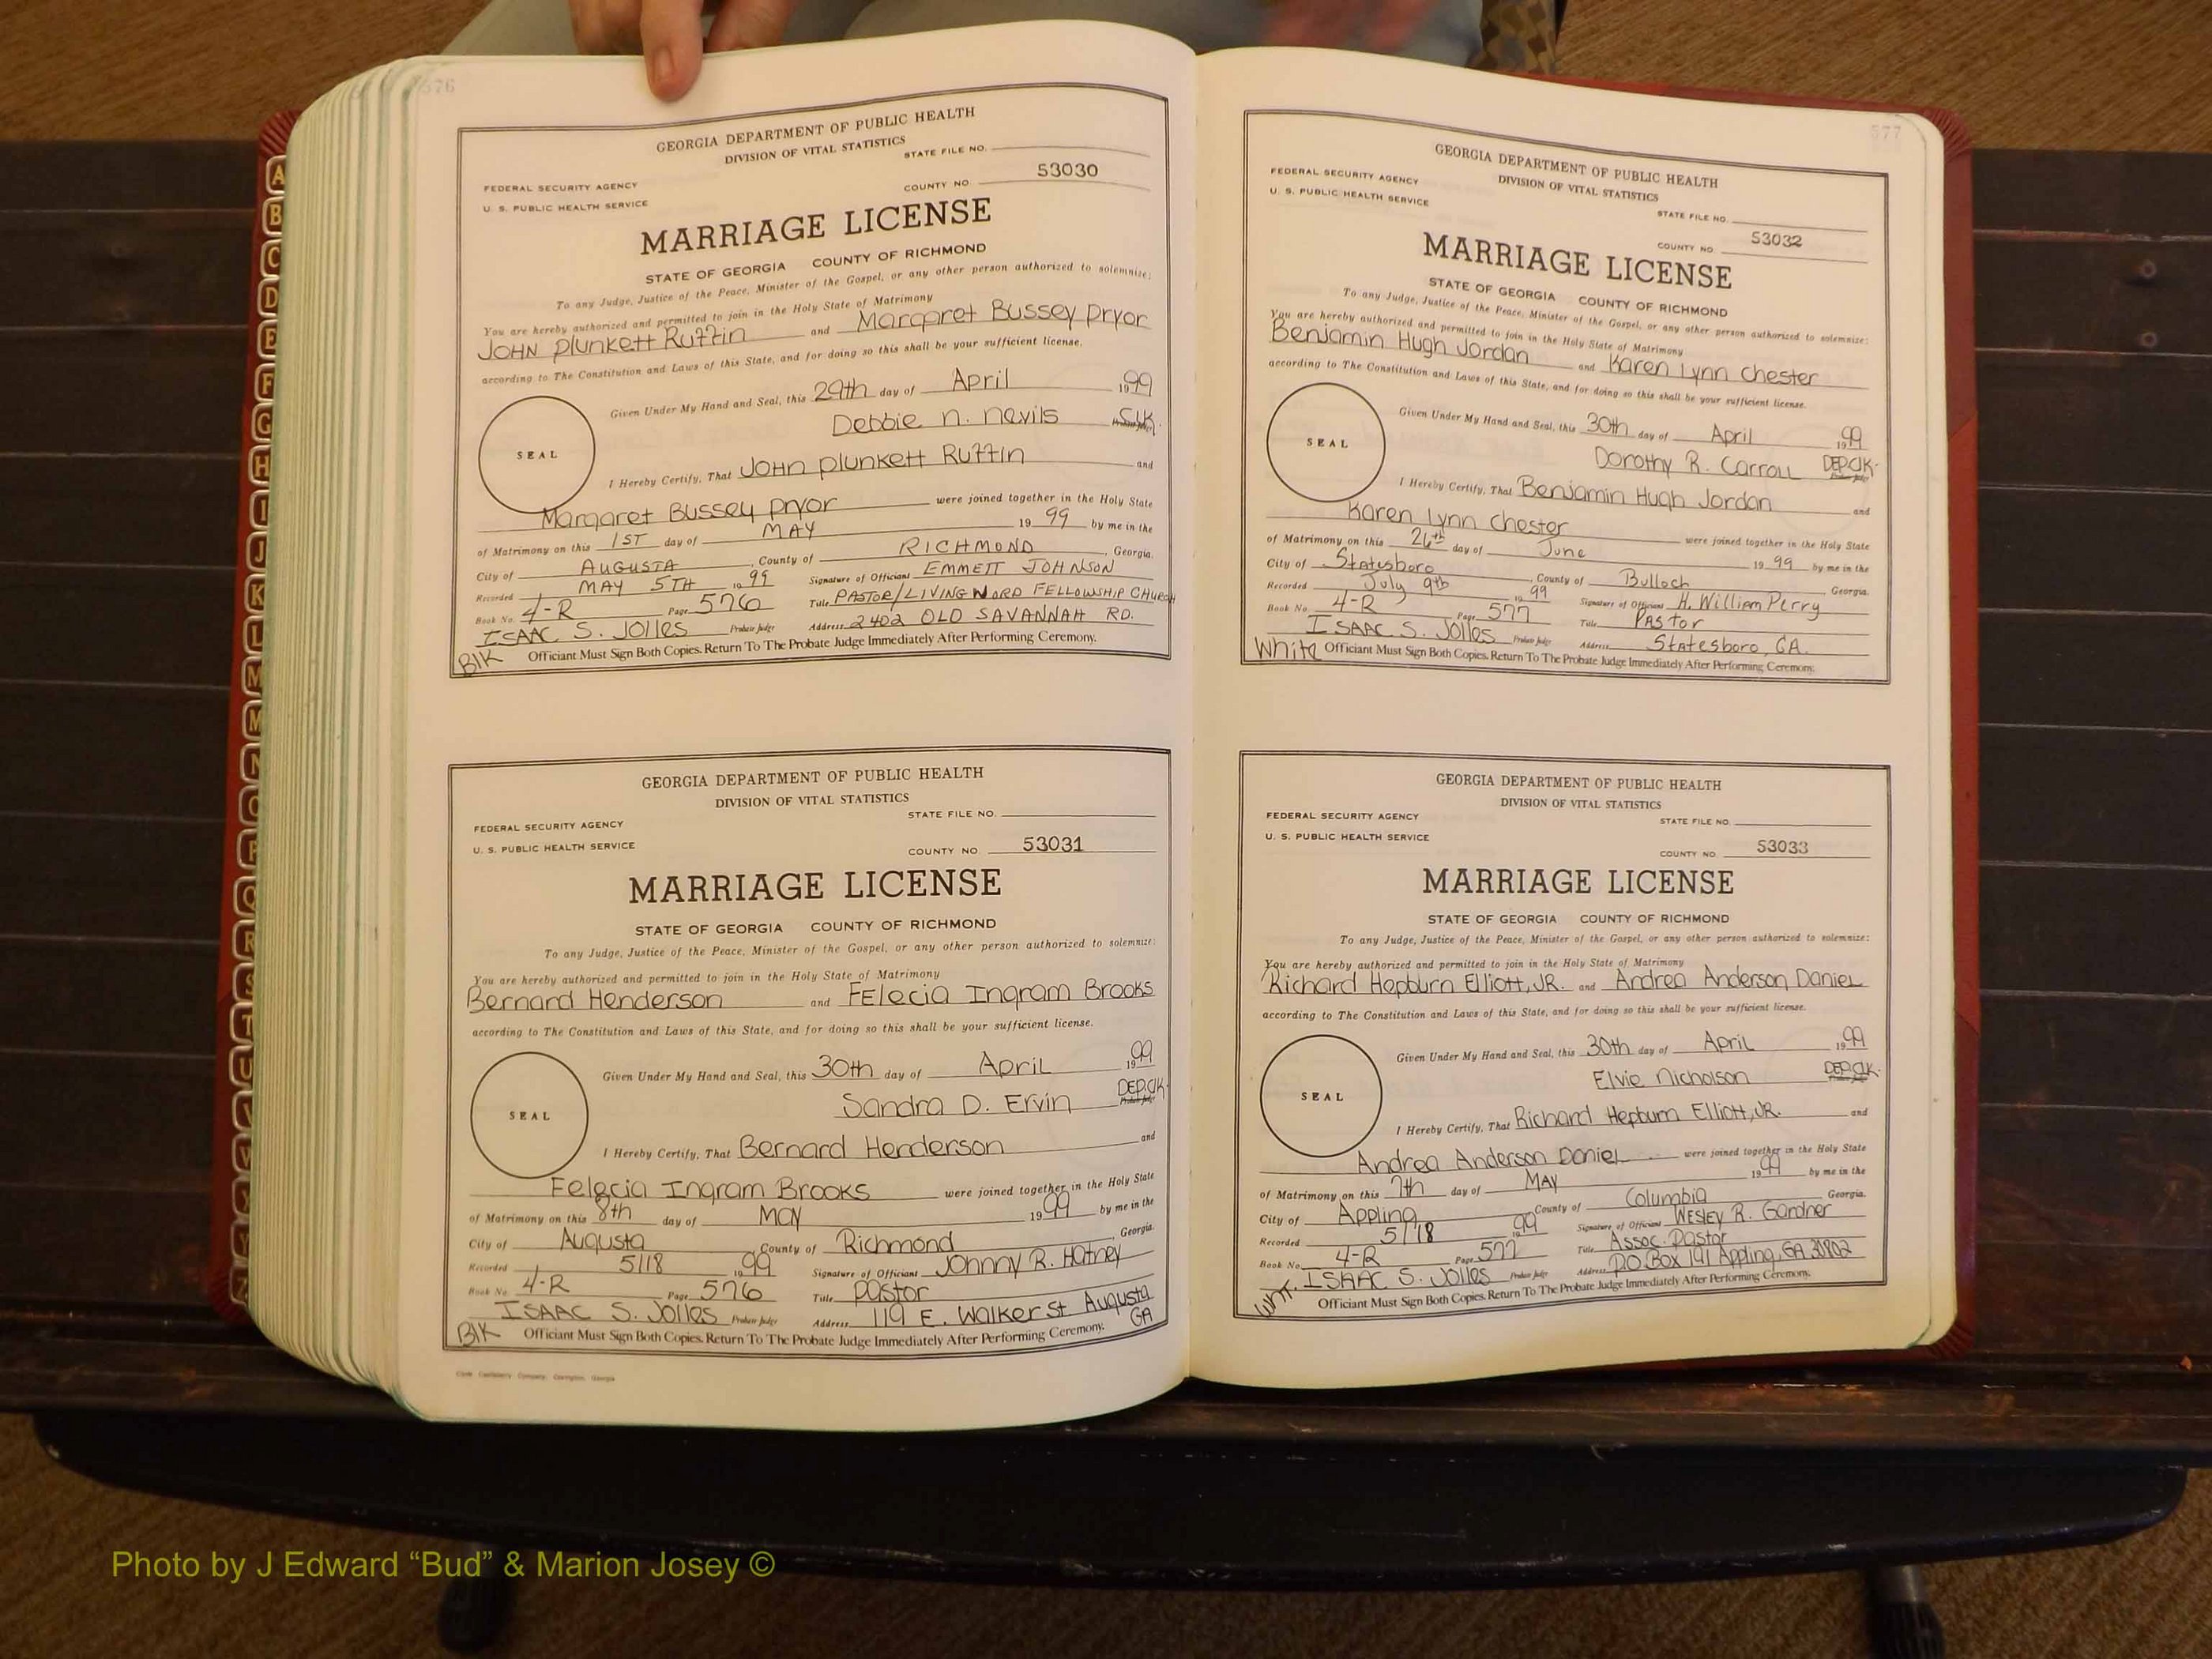 576
GEORGIA DEPARTMENT OF PUBLIC HEALTH
DIVISION OF VITAL STATISTICS
STATE FILE NO.
FEDERAL SECURITY AGENCY
U. S. PUBLIC HEALTH SERVICE
COUNTY NO 53030
MARRIAGE LICENSE
STATE OF GEORGIA COUNTY OF RICHMOND
To any Judge, Justice of the Peace, Minister of the Gospel, or any other person authorized to solemnize:
You are hereby authorized and permitted to join in the Holy State of Matrimony
JOHN plunkett Ruffin and Margaret Bussey Pryor
according to The Constitution and Laws of this State, and for doing so this shall be your sufficient license.
Given Under My Hand and Seal, this 29th day of April 1999
Debbie n. nevils Clk.
SEAL
I Hereby Certify, That JOHN plunkett Ruffin and
Margaret Bussey pryor were joined together in the Holy State
of Matrimony on this 1ST day of MAY 19 99 by me in the
City of AUGUSTA, County of RICHMOND, Georgia.
Recorded MAY 5TH 19 99 Signature of Officiant EMMETT JOHNSON
Book No. 4-R Page 576 Title PASTOR/LIVING WORD FELLOWSHIP CHURCH
ISAAC S. JOlles Probate Judge Address 2402 OLD SAVANNAH RD.
Blk Officiant Must Sign Both Copies. Return To The Probate Judge Immediately After Performing Ceremony.
GEORGIA DEPARTMENT OF PUBLIC HEALTH
DIVISION OF VITAL STATISTICS
STATE FILE NO.
FEDERAL SECURITY AGENCY
U. S. PUBLIC HEALTH SERVICE
COUNTY NO 53031
MARRIAGE LICENSE
STATE OF GEORGIA COUNTY OF RICHMOND
To any Judge, Justice of the Peace, Minister of the Gospel, or any other person authorized to solemnize:
You are hereby authorized and permitted to join in the Holy State of Matrimony
Bernard Henderson and FElecia Ingram Brooks
according to The Constitution and Laws of this State, and for doing so this shall be your sufficient license.
Given Under My Hand and Seal, this 30th day of April 1999
Sandra D. Ervin DEP.Clk.
SEAL
I Hereby Certify, That Bernard Henderson and
Felecia Ingram Brooks were joined together in the Holy State
of Matrimony on this 8th day of MAY 1999 by me in the
City of Augusta County of Richmond, Georgia.
Recorded 5/18 1999 Signature of Officiant Johnny R. Hatney
Book No. 4-R Page 576 Title pastor
ISAAC S. Jolles Probate Judge Address 119 E. Walker St Augusta GA
Blk Officiant Must Sign Both Copies. Return To The Probate Judge Immediately After Performing Ceremony.
577
GEORGIA DEPARTMENT OF PUBLIC HEALTH
DIVISION OF VITAL STATISTICS
FEDERAL SECURITY AGENCY
U. S. PUBLIC HEALTH SERVICE
STATE FILE NO.
COUNTY NO 53032
MARRIAGE LICENSE
STATE OF GEORGIA COUNTY OF RICHMOND
To any Judge, Justice of the Peace, Minister of the Gospel, or any other person authorized to solemnize:
You are hereby authorized and permitted to join in the Holy State of Matrimony
Benjamin Hugh Jordan and Karen Lynn Chester
according to The Constitution and Laws of this State, and for doing so this shall be your sufficient license.
Given Under My Hand and Seal, this 30th day of April 1999
Dorothy R. Carroll DEP.Clk.
SEAL
I Hereby Certify, That Benjamin Hugh Jordan and
Karen Lynn Chester were joined together in the Holy State
of Matrimony on this 26th day of June 19 99 by me in the
City of Statesboro, County of Bulloch Georgia.
Recorded July 9th 19 99 Signature of Officiant H. William Perry
Book No. 4-R Page 577 Title Pastor
ISAAC S. Jolles Probate Judge Address Statesboro, GA.
White Officiant Must Sign Both Copies. Return To The Probate Judge Immediately After Performing Ceremony.
GEORGIA DEPARTMENT OF PUBLIC HEALTH
DIVISION OF VITAL STATISTICS
FEDERAL SECURITY AGENCY
STATE FILE NO.
U. S. PUBLIC HEALTH SERVICE
COUNTY NO 53033
MARRIAGE LICENSE
STATE OF GEORGIA COUNTY OF RICHMOND
To any Judge, Justice of the Peace, Minister of the Gospel, or any other person authorized to solemnize:
You are hereby authorized and permitted to join in the Holy State of Matrimony
Richard Hepburn Elliott, JR. and Andrea Anderson Daniel
according to The Constitution and Laws of this State, and for doing so this shall be your sufficient license.
Given Under My Hand and Seal, this 30th day of April 1999
Elvie Nicholson DEP.Clk.
SEAL
I Hereby Certify, That Richard Hepburn Elliott, JR. and
Andrea Anderson Daniel were joined together in the Holy State
of Matrimony on this 7th day of MAY 1999 by me in the
City of Appling County of Columbia Georgia.
Recorded 5/18 1999 Signature of Officiant WESley R. Gardner
Book No. 4-R Page 577 Title Assoc. Pastor
ISAAC S. Jolles Probate Judge Address P.O. Box 141 Appling, GA 30802
Wht. Officiant Must Sign Both Copies. Return To The Probate Judge Immediately After Performing Ceremony.
A
B
C
D
E
F
G
H
I
J
K
L
M
M
N
O
P
Q
R
S
T
U
V
W
X
Y
Z
Photo by J Edward “Bud” & Marion Josey ©